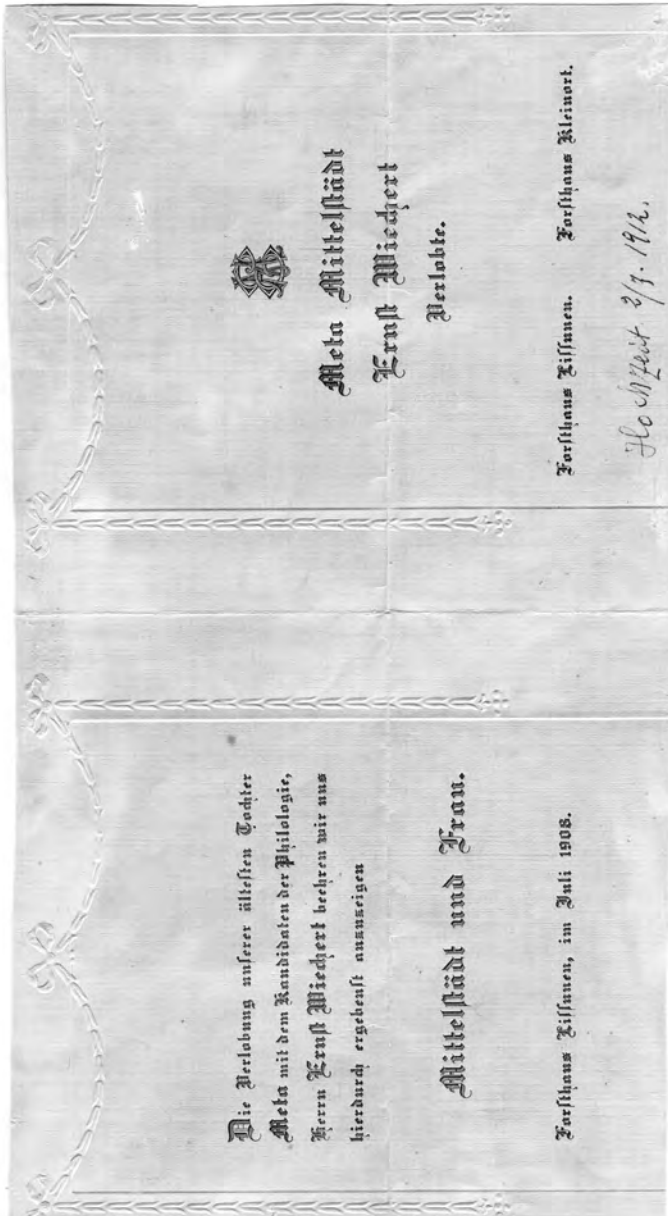 Die Verlobung unserer ältesten Tochter
Meta mit dem Kandidaten der Philologie,
Herrn Ernst Wiechert beehren wir uns
hierdurch ergebenst anzuzeigen
Mittelstädt und Frau.
Forsthaus Lissunen, im Juli 1908.
Meta Mittelstädt
Ernst Wiechert
Verlobte.
Forsthaus Lissunen. Forsthaus Kleinort.
Hochzeit 1912.